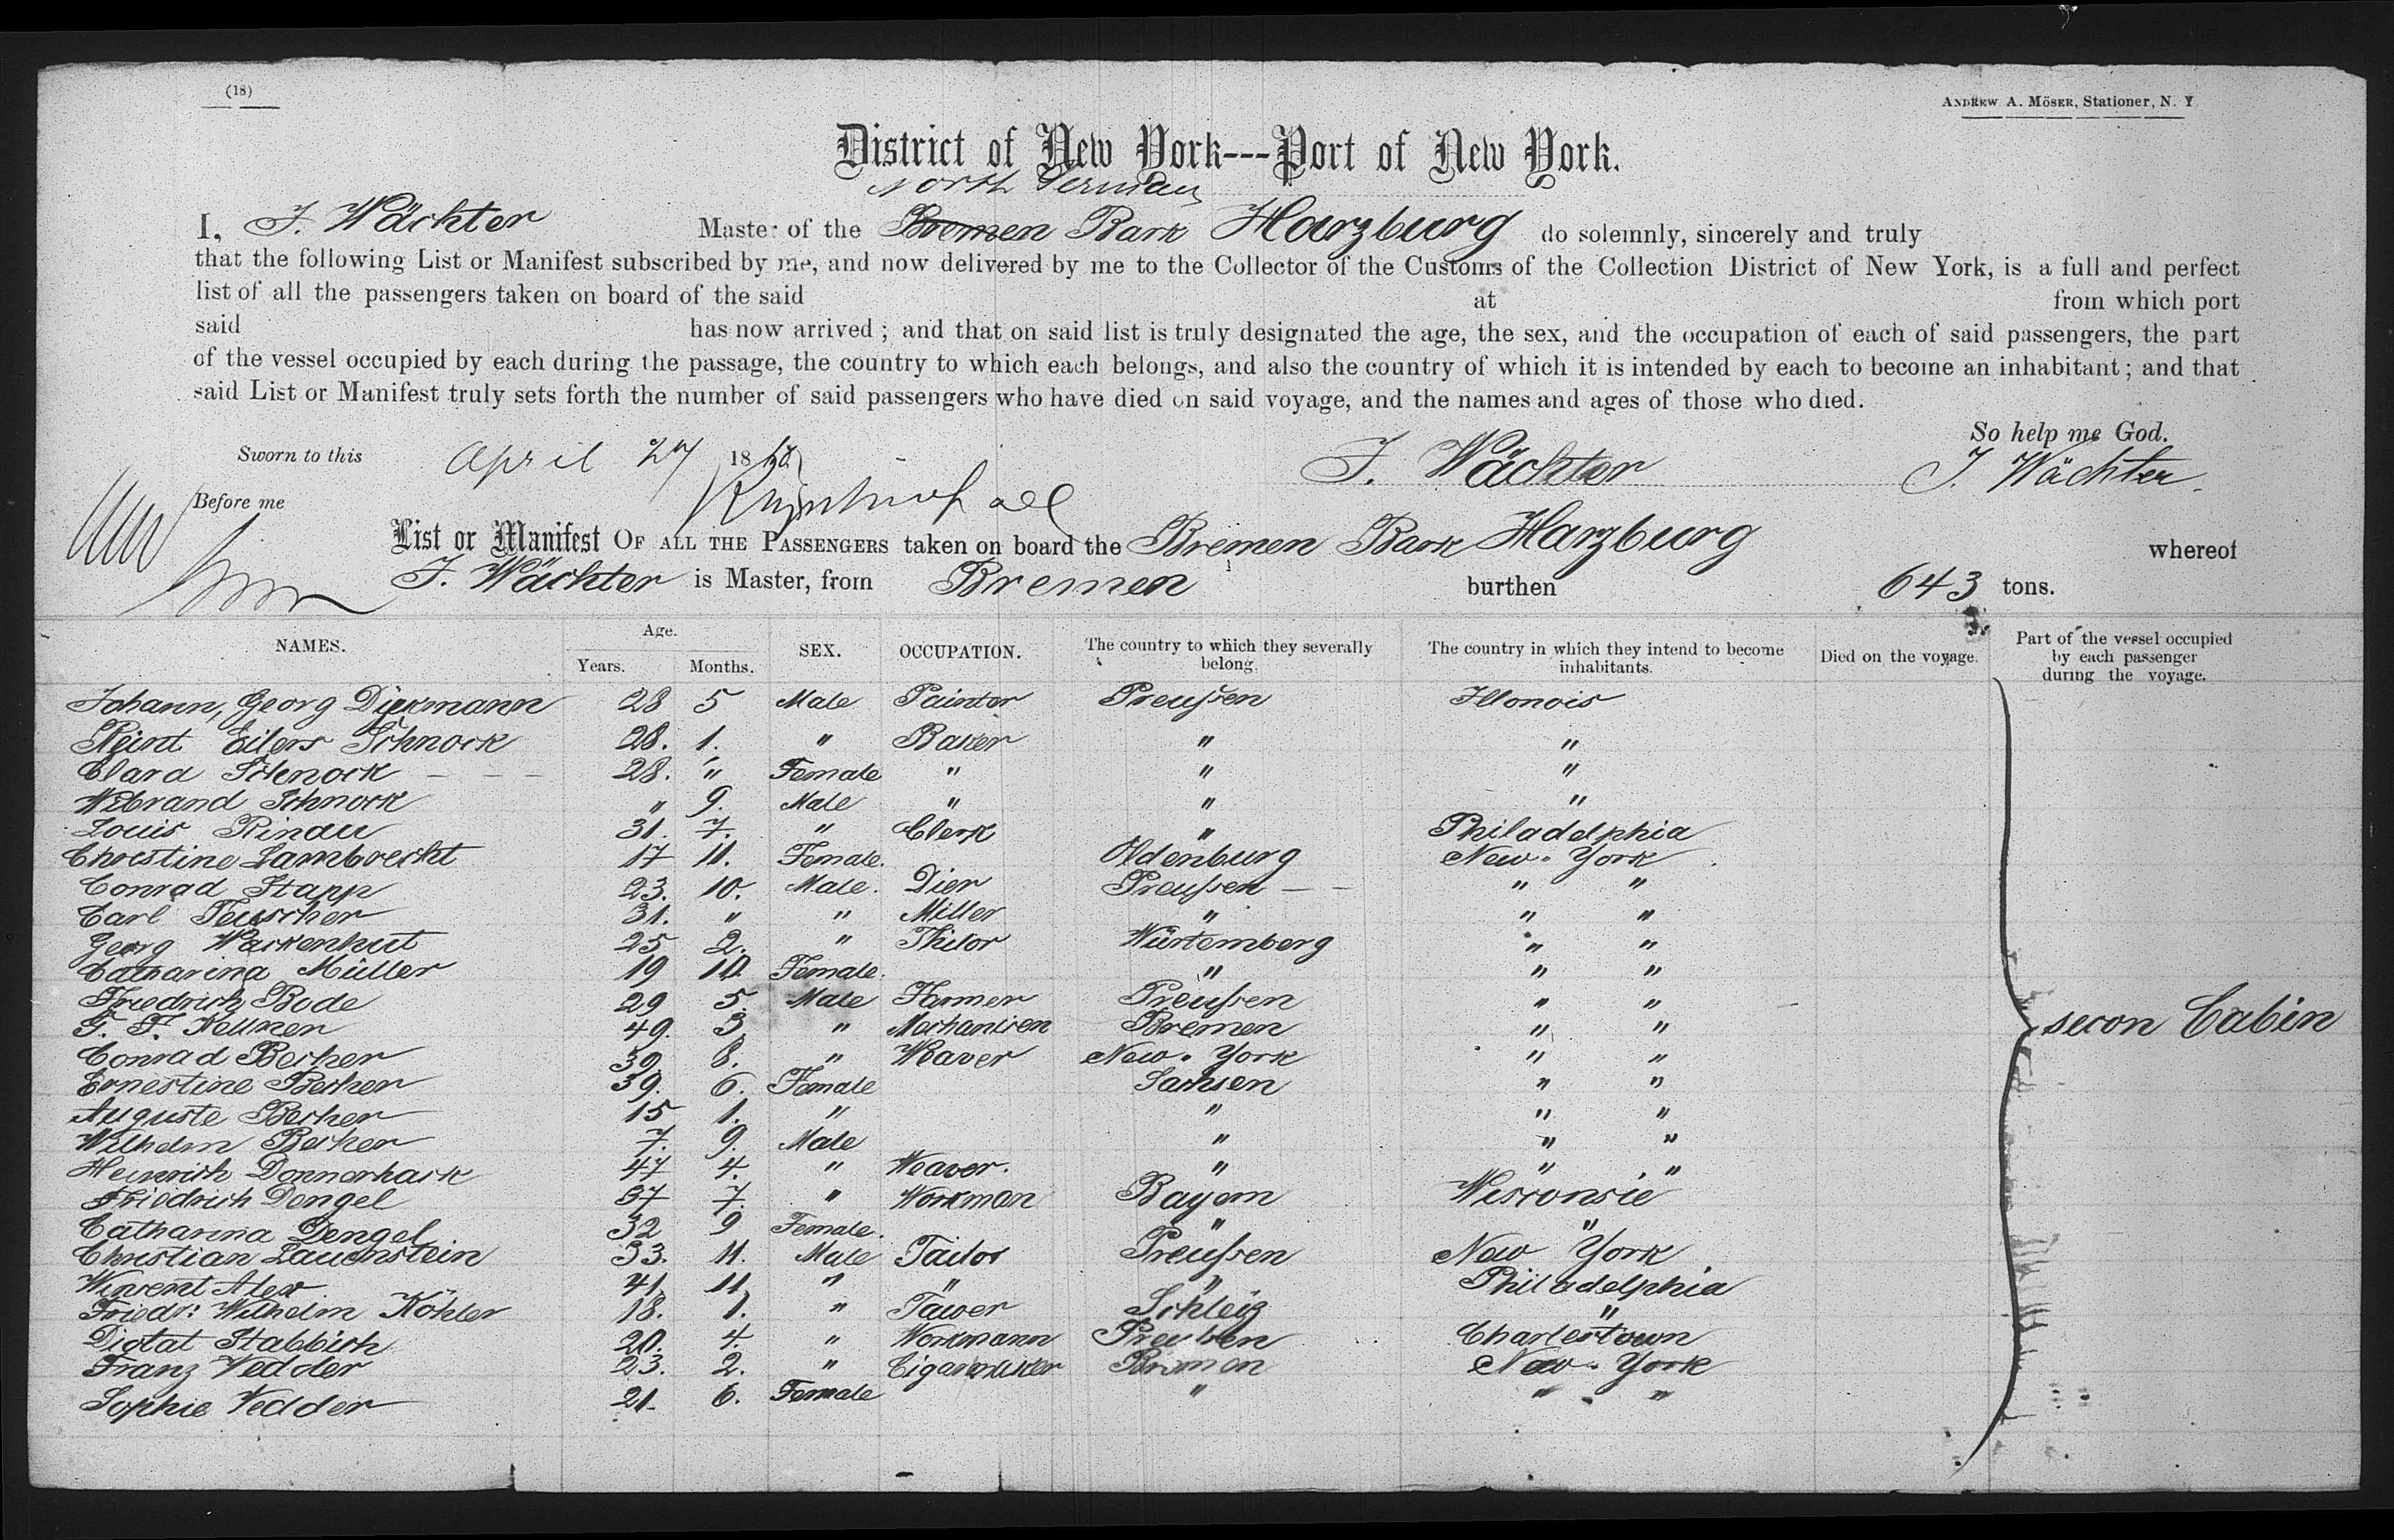 (18)
ANDREW A. MÖSER, Stationer, N. Y
District of New York---Port of New York.
North German
I, J. Wächter Master of the Bremen Bark Harzburg do solemnly, sincerely and truly
that the following List or Manifest subscribed by me, and now delivered by me to the Collector of the Customs of the Collection District of New York, is a full and perfect
list of all the passengers taken on board of the said at from which port
said has now arrived ; and that on said list is truly designated the age, the sex, and the occupation of each of said passengers, the part
of the vessel occupied by each during the passage, the country to which each belongs, and also the country of which it is intended by each to become an inhabitant ; and that
said List or Manifest truly sets forth the number of said passengers who have died on said voyage, and the names and ages of those who died.
So help me God.
Sworn to this April 27 18 J. Wächter J. Wächter
Before me
List or Manifest OF ALL THE PASSENGERS taken on board the Bremen Bark Harzburg whereof
J. Wächter is Master, from Bremen burthen 643 tons.
NAMES. Age. Years. Months. SEX. OCCUPATION. The country to which they severally belong. The country in which they intend to become inhabitants. Died on the voyage. Part of the vessel occupied by each passenger during the voyage.
Johann, Georg Diekmann 28 5 Male Painter Preußen Illonois
Reint Eilers Schnock 28. 1. " Baker " "
Clara Schnock 28. " Female " " "
Wibrand Schnock " 9. Male " " "
Louis Rinau 31. 7. " Clerk " Philadelphia
Christine Lambrecht 17 11. Female. Oldenburg New-York
Conrad Stapp 23. 10. Male. Dier Preußen " "
Carl Teuscher 31. " " Miller " " "
Georg Wackenhut 25 2. " Würtemberg " "
Catharina Müller 19 10 Female. " " "
Friedrich Bode 29 5. Male Farmer Preußen " "
F. Kellner 49. 3 " Mechanicen Bremen " "
Conrad Becher 39. 8. " Weaver New-York " "
Ernestine Becher 39. 6. Female Sachsen " "
Auguste Becher 15 1. " " " "
Wilhelm Becher 7. 9. Male " " "
Heinrich Donnerhack 47 4. " Weaver. " " "
Friedrich Dengel 37 7. " Workman Bayern Wisconsie
Catharina Dengel 32 9 Female. " "
Christian Lauenstein 33. 11. Male Tailor Preußen New York
Wincent Alex 41 11 " " " Philadelphia
Friedr: Wilhelm Köhler 18. 1. " Tawer Schleiz "
Diotat Stabbich 20. 4. " Workmann Preußen Charlestown
Franz Vedder 23. 2. " Cigarmaker Bremen New-York
Sophie Vedder 21. 6. Female " " "
secon Cabin